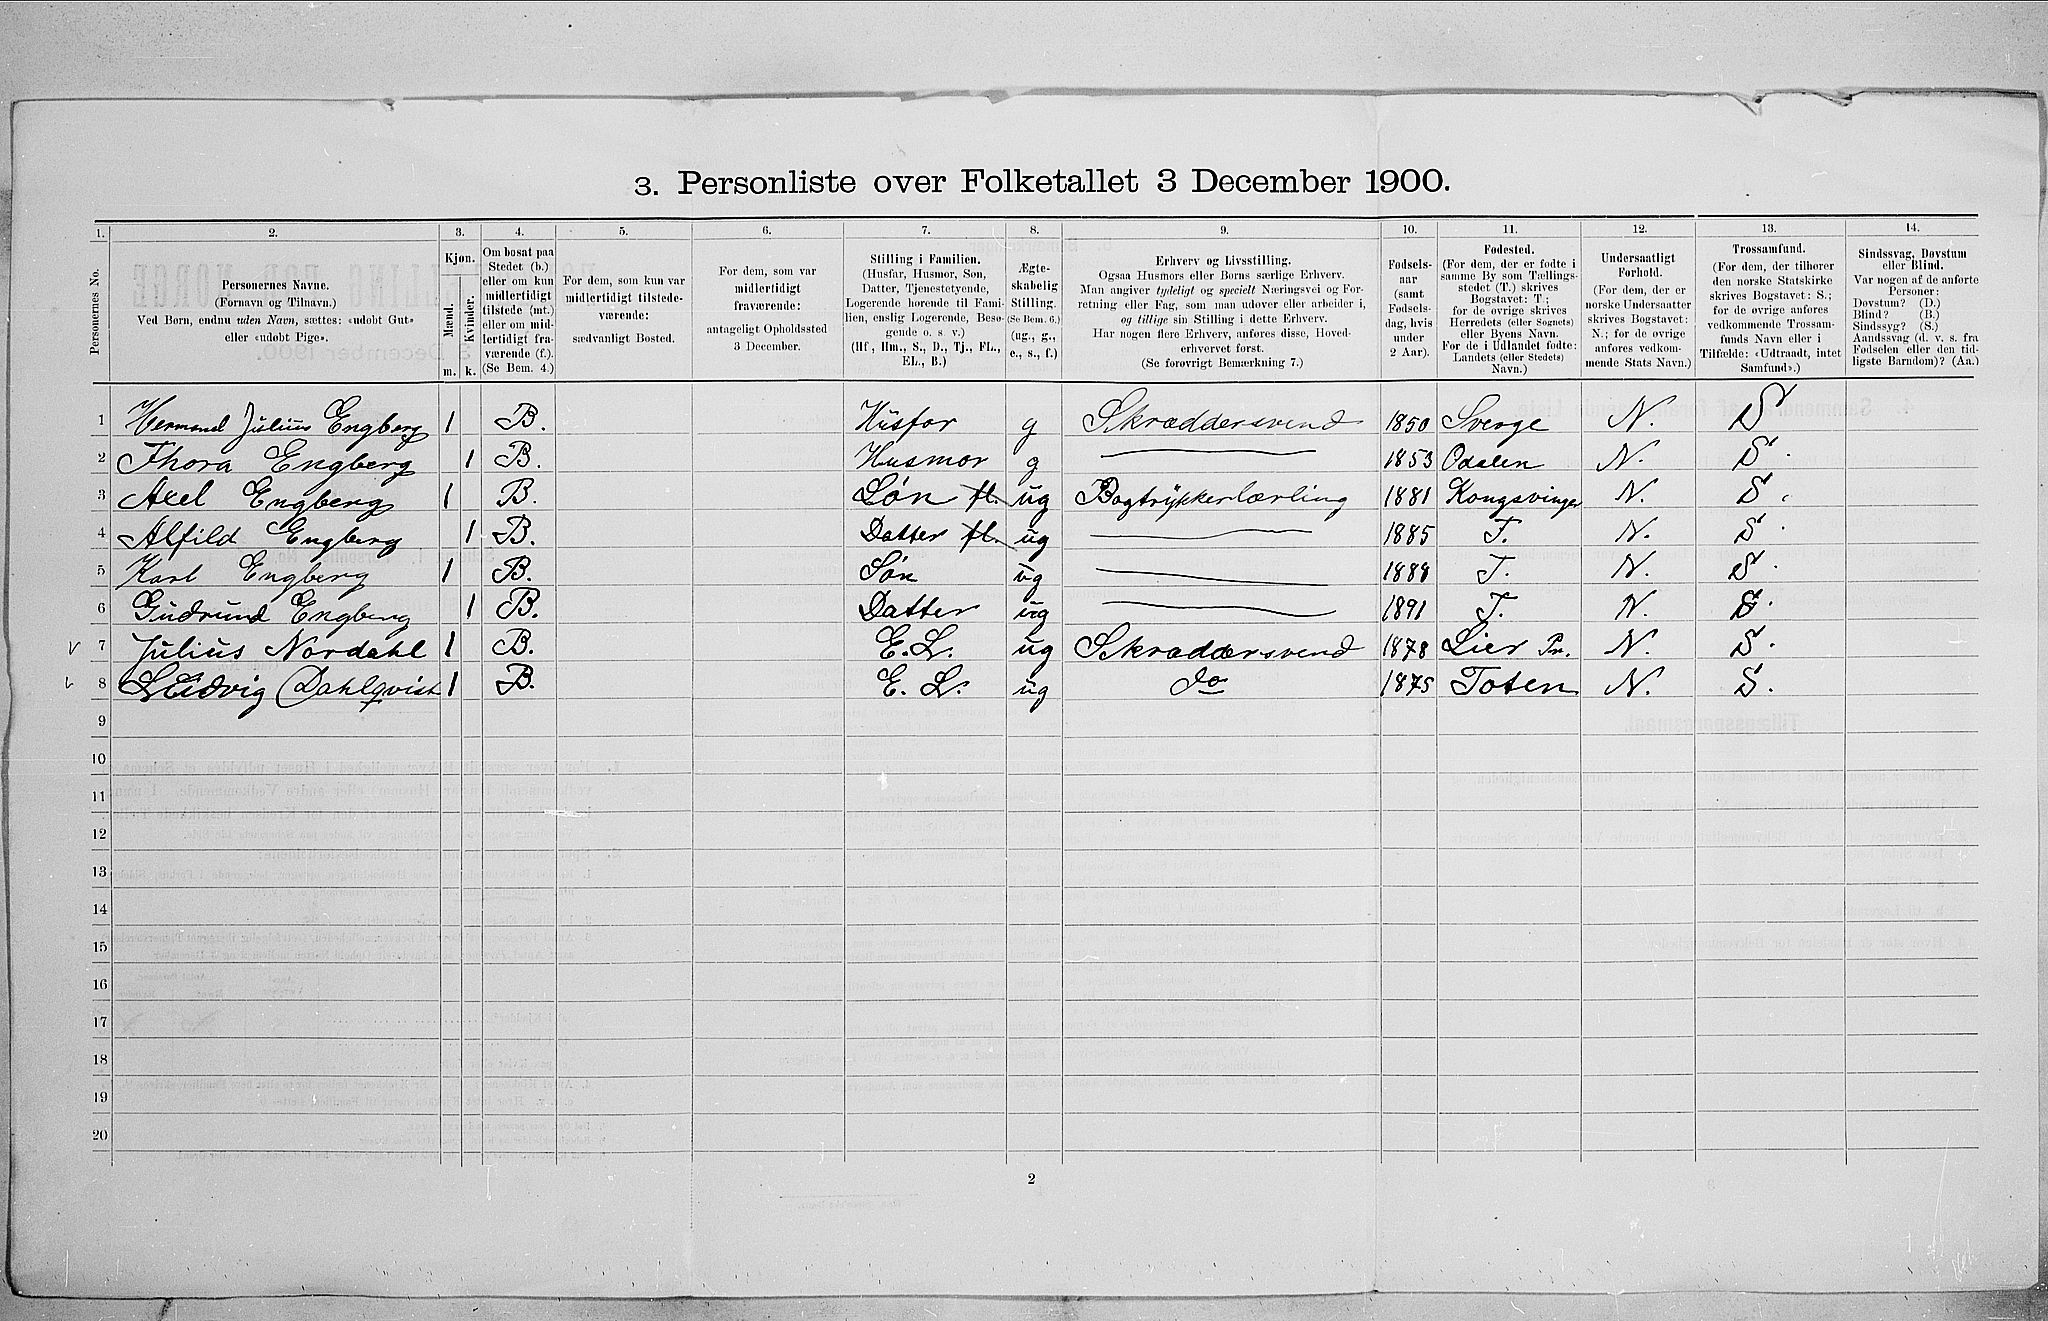 3. Personliste over Folketallet 3 December 1900.
1. 2. 3. 4. 5. 6. 7. 8. 9. 10. 11. 12. 13. 14.
Personernes No.
Personernes Navne.
(Fornavn og Tilnavn.)
Ved Børn, endnu uden Navn, sættes: «udøbt Gut»
eller «udøbt Pige».
Kjøn.
Mænd.
Kvinder.
m. k.
Om bosat paa
Stedet (b.)
eller om kun
midlertidigt
tilstede (mt.)
eller om mid-
lertidigt fra-
værende (f.).
(Se Bem. 4.)
For dem, som kun var
midlertidigt tilstede-
værende:
sædvanligt Bosted.
For dem, som var
midlertidigt
fraværende:
antageligt Opholdssted
3 December.
Stilling i Familien.
(Husfar, Husmor, Søn,
Datter, Tjenestetyende,
Logerende hørende til Fami-
lien, enslig Logerende, Besø-
gende o. s. v.)
(Hf, Hm., S., D., Tj., FL.,
EL., B.)
Ægte-
skabelig
Stilling.
(Se Bem. 6.)
(ug., g.,
e., s., f.)
Erhverv og Livsstilling.
Ogsaa Husmors eller Børns særlige Erhverv.
Man angiver tydeligt og specielt Næringsvei og For-
retning eller Fag, som man udøver eller arbeider i,
og tillige sin Stilling i dette Erhverv.
Har nogen flere Erhverv, anføres disse, Hoved-
erhvervet først.
(Se forøvrigt Bemærkning 7.)
Fødsels-
aar
(samt
Fødsels-
dag, hvis
under
2 Aar).
Fødested.
(For dem, der er fødte i
samme By som Tællings-
stedet (T.) skrives
Bogstavet: T.;
for de øvrige skrives
Herredets (eller Sognets)
eller Byens Navn.
For de i Udlandet fødte:
Landets (eller Stedets)
Navn.)
Undersaatligt
Forhold.
(For dem, der er
norske Undersaatter
skrives Bogstavet:
N.; for de øvrige
anføres vedkom-
mende Stats Navn.)
Trossamfund.
(For dem, der tilhører
den norske Statskirke
skrives Bogstavet: S.;
for de øvrige anføres
vedkommende Trossam-
funds Navn eller i
Tilfælde: «Udtraadt, intet
Samfund».)
Sindssvag, Døvstum
eller Blind.
Var nogen af de anførte
Personer:
Døvstum? (D.)
Blind? (B.)
Sindssyg? (S.)
Aandssvag (d. v. s. fra
Fødselen eller den tid-
ligste Barndom)? (Aa.)
1 Hermand Julius Engberg 1 B. Husfar g Skræddersvend 1850 Sverge N. S
2 Thora Engberg 1 B. Husmor g 1853 Odalen N. S.
3 Axel Engberg 1 B. Søn fl. ug Bogtrykkerlærling 1881 Kongsvinger N. S.
4 Alfild Engberg 1 B. Datter fl. ug 1885 T. N. S.
5 Karl Engberg 1 B. Søn ug 1888 T. N. S.
6 Gudrund Engberg 1 B. Datter ug 1891 T. N. S.
7 Julius Nordahl 1 B. E. L. ug Skræddersvend 1878 Lier Pr. N. S.
8 Ludvig Dahlqvist 1 B. E. L. ug do 1875 Toten N. S.
9
10
11
12
13
14
15
16
17
18
19
20
2